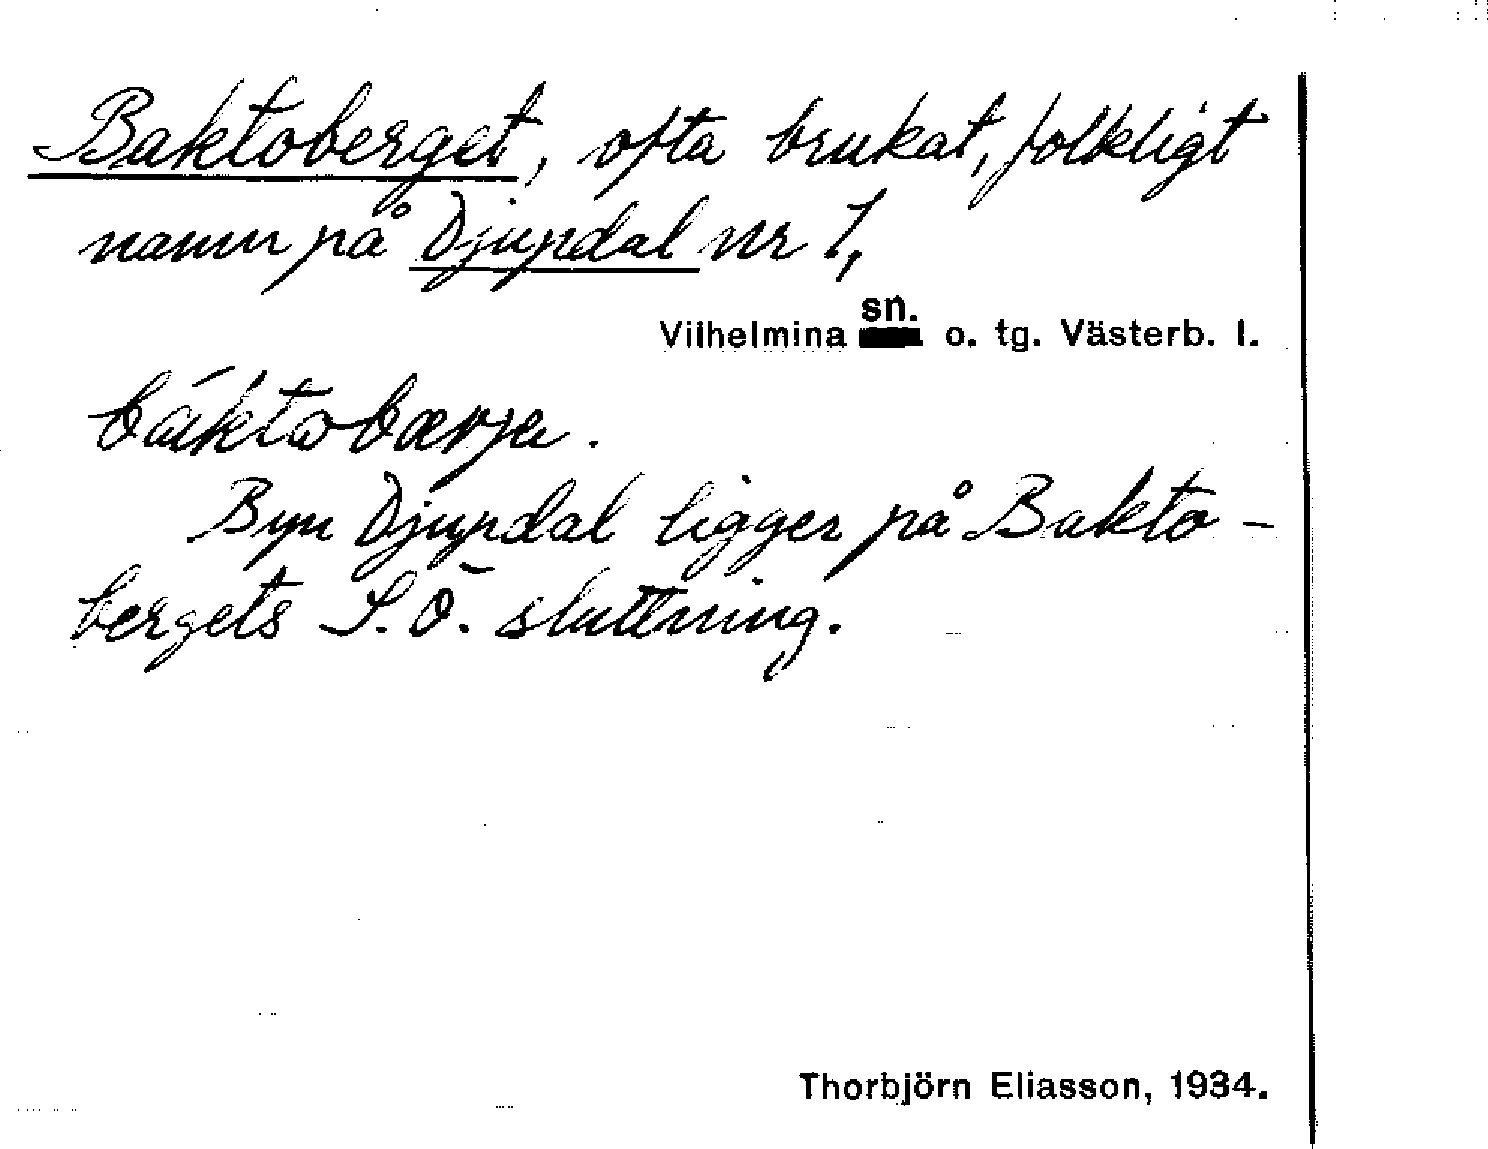 Baktoberget, ofta brukat, folkligt
namn på Djupdal nr 1,
Vilhelmina sn. o. tg. Västerb. l.
báktobærje.
Byn Djupdal ligger på Bakto-
bergets S.Ö. sluttning.
Thorbjörn Eliasson, 1934.